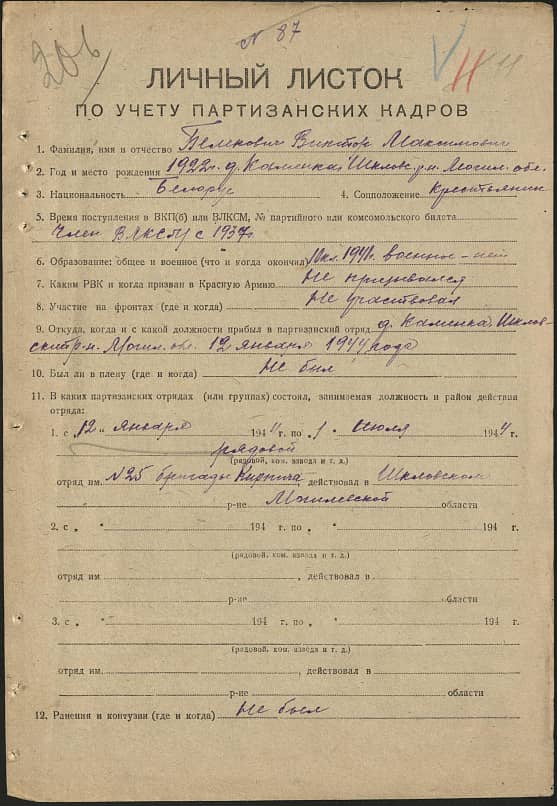 № 87
206
ЛИЧНЫЙ ЛИСТОК
ПО УЧЕТУ ПАРТИЗАНСКИХ КАДРОВ
1. Фамилия, имя и отчество Виктор Максимович
2. Год и место рождения 1922 г. д. Каменка Шкловс. р-н. Могил. обл.
3. Национальность Белорус 4. Соцположение Крестьянин
5. Время поступления в ВКП(б) или ВЛКСМ, № партийного или комсомольского билета
Член ВЛКСМ с 1937г.
6. Образование: общее и военное (что и когда окончил) 1941г. военное - нет
7. Каким РВК и когда призван в Красную Армию Не призывался
8. Участие на фронтах (где и когда) Не участвовал
9. Откуда, когда и с какой должности прибыл в партизанский отряд д. Каменка Шклов-
ский р-н. Могил. обл. 12 января 1944 года
10. Был ли в плену (где и когда) Не был
11. В каких партизанских отрядах (или группах) состоял, занимаемая должность и район действия
отряда:
1. с „12" января 1944 г. по „1" июля 1944 г.
рядовой
(рядовой, ком. взвода и т. д.)
отряд им. №25 бригады Кирпича, действовал в Шкловском
р-не Могилевской области
2. с „ " 194 г. по „ " 194 г.
(рядовой, ком. взвода и т. д.)
отряд им. , действовал в
р-не области
3. с „ " 194 г. по „ " 194 г.
(рядовой, ком. взвода и т. д.)
отряд им. , действовал в
р-не области
12. Ранения и контузии (где и когда) Не был